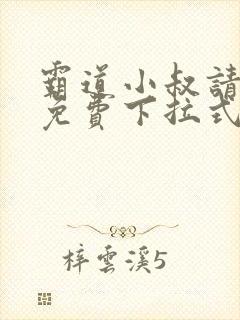 霸道小叔請
免費下拉式
梓雲溪5